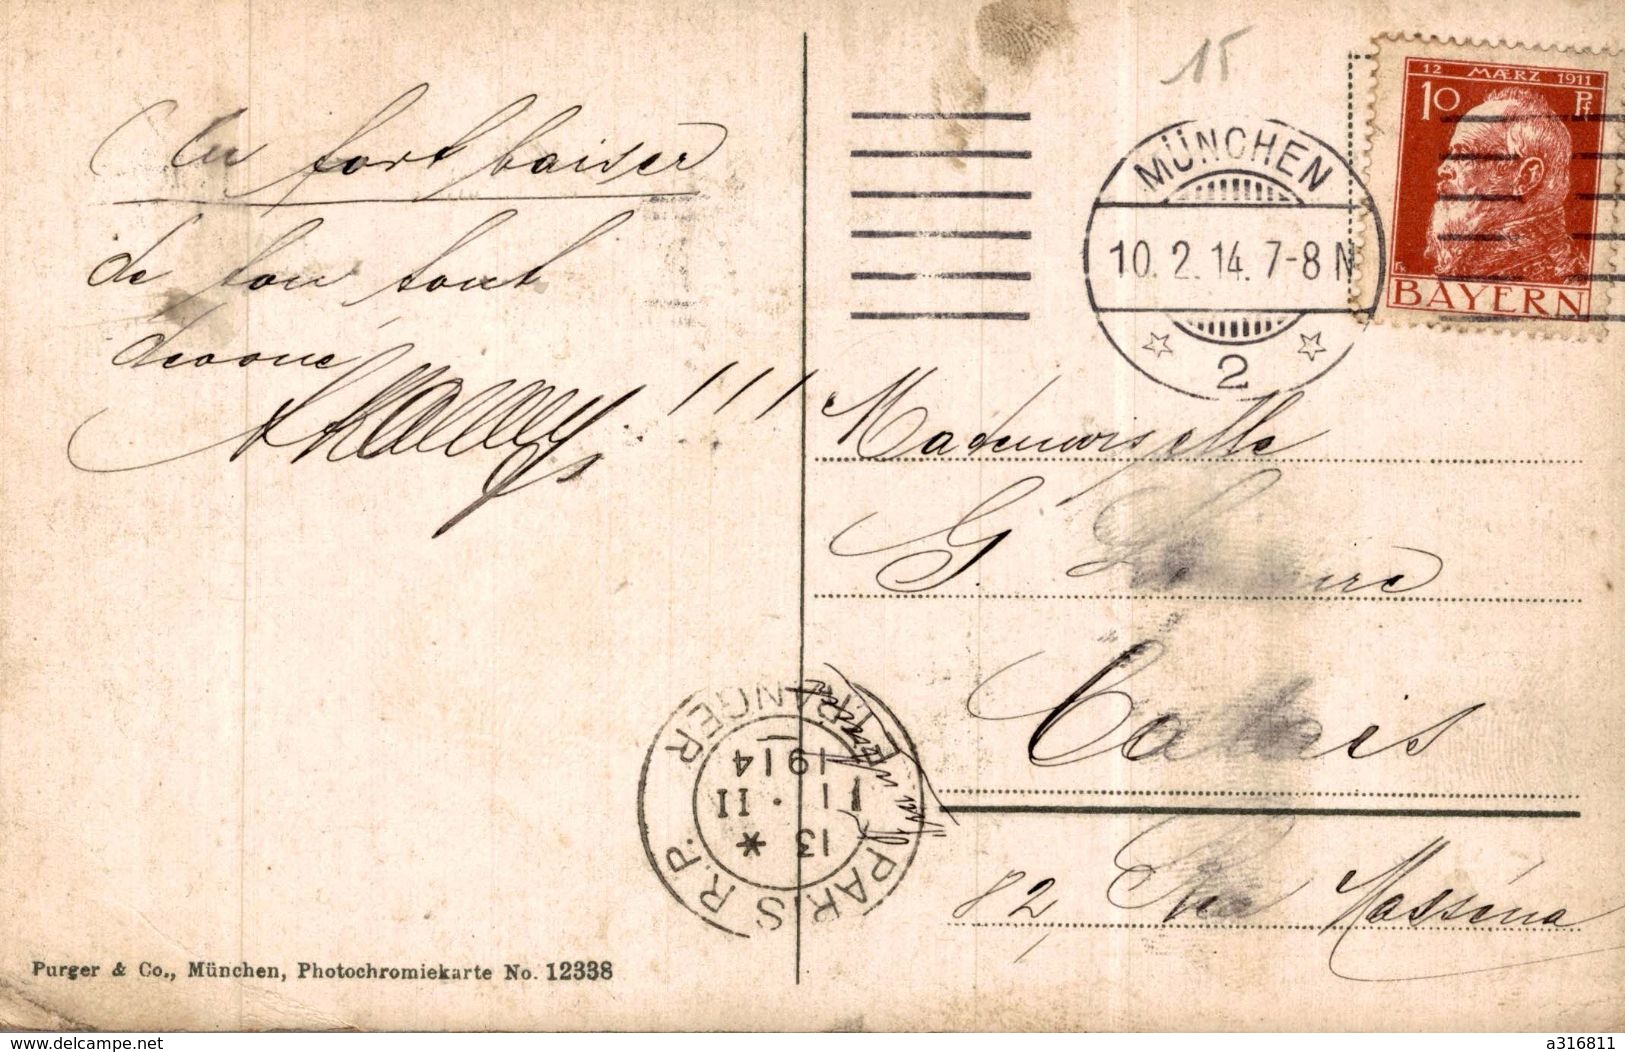 Un fort baiser
de ton tout
dévoué
!!!
15
MÜNCHEN
10. 2. 14. 7-8 N
2
12 MÆRZ 1911
10 Pf
BAYERN
Mademoiselle
G.
Calais
82, Rue Masséna
PARIS R.P. ETRANGER
13
II
1914
Purger & Co., München, Photochromiekarte No. 12338
www.delcampe.net
a316811